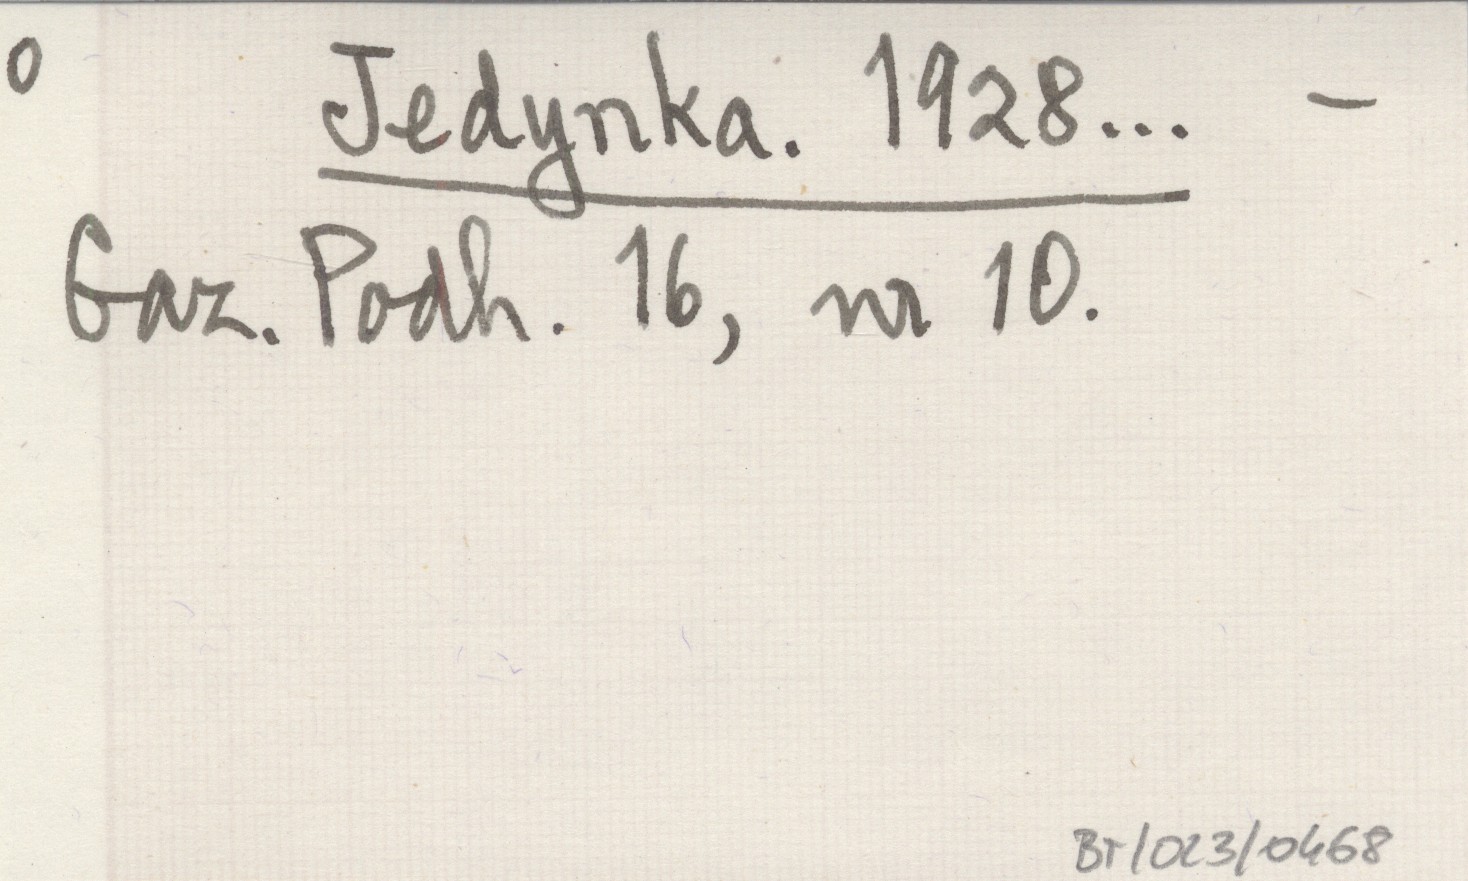 o Jedynka. 1928... –
Gaz. Podh. 16, nr 10.
BT/023/0468